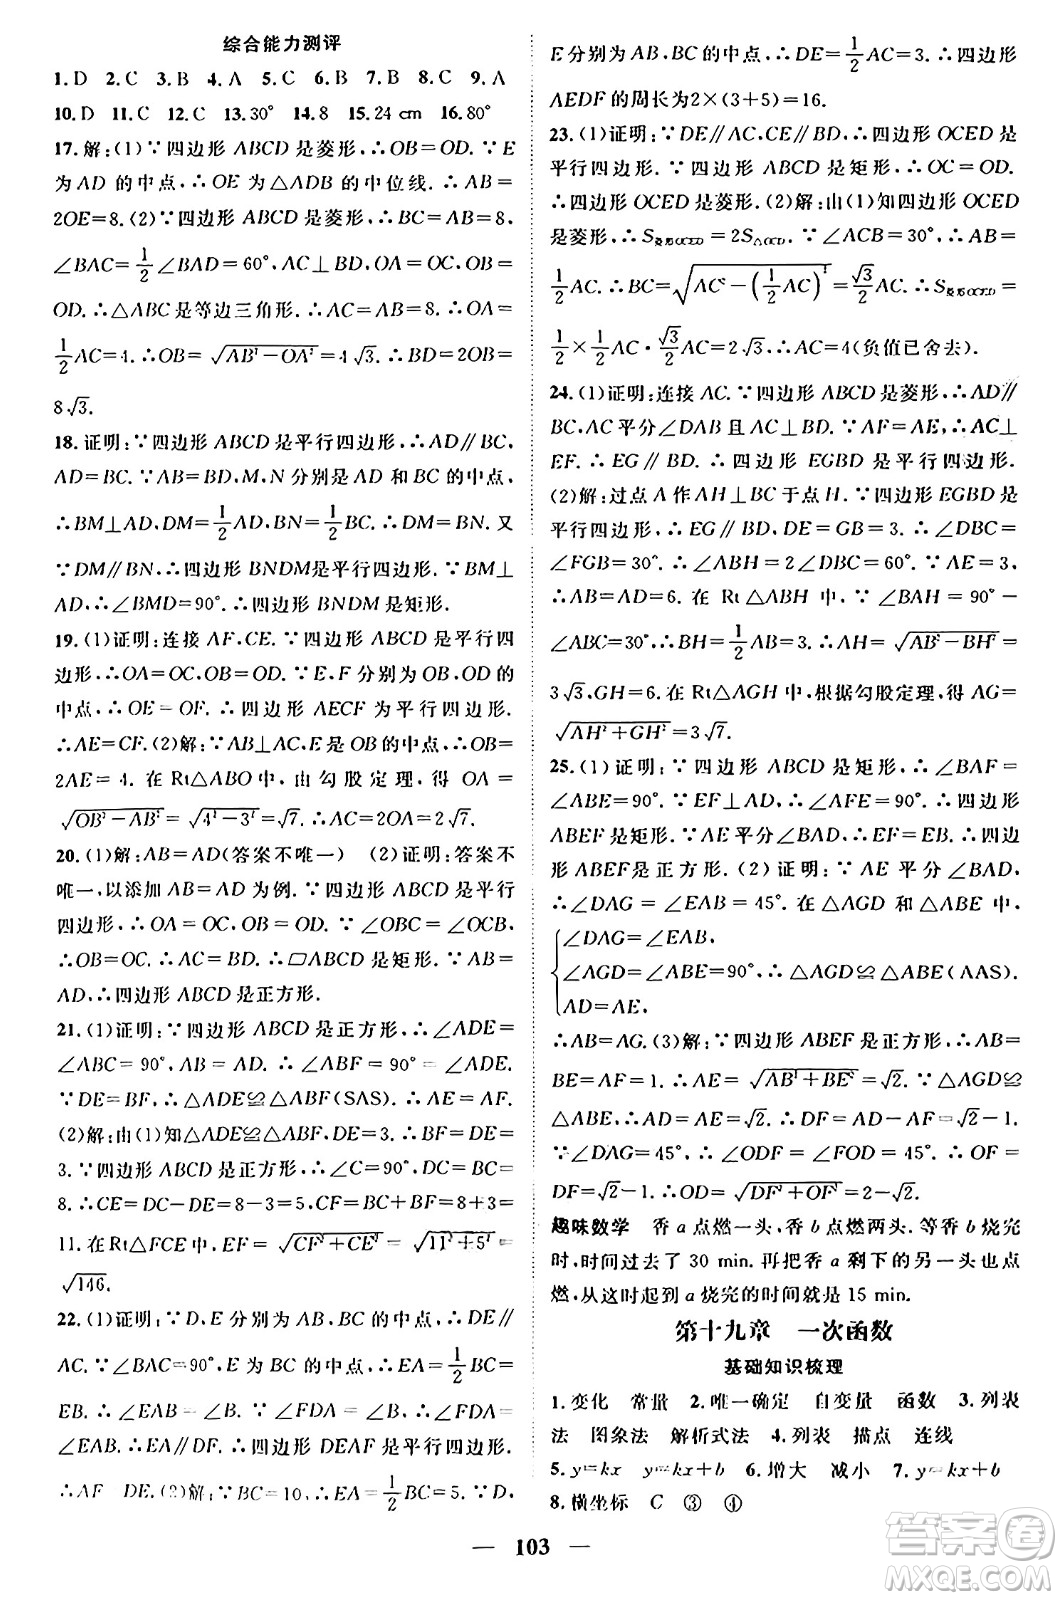 综合能力测评
1.D 2.C 3.B 4.A 5.C 6.B 7.B 8.C 9.A
10.D 11.C 12.C 13.30° 14.8 15.24 cm 16.80°
17.解:(1)∵四边形 ABCD 是菱形,∴OB=OD.∵E
为 AD 的中点,∴OE 为△ADB 的中位线.∴AB=
2OE=8.(2)∵四边形 ABCD 是菱形,∴BC=AB=8,
∠BAC=1/2∠BAD=60°,AC⊥BD,OA=OC,OB=
OD.∴△ABC 是等边三角形.∴AC=AB=8.∴OA=
1/2AC=4.∴OB=√(AB²-OA²)=4√3.∴BD=2OB=
8√3.
18.证明:∵四边形 ABCD 是平行四边形,∴AD∥BC,
AD=BC.∵AB=BD,M,N 分别是 AD 和 BC 的中点,
∴BM⊥AD,DM=1/2AD,BN=1/2BC.∴DM=BN.又
∵DM∥BN,∴四边形 BNDM是平行四边形.∵BM⊥
AD,∴∠BMD=90°.∴四边形 BNDM 是矩形.
19.(1)证明:连接 AF,CE.∵四边形 ABCD 是平行四
边形,∴OA=OC,OB=OD.∵E,F 分别为 OB,OD 的
中点,∴OE=OF.∴四边形 AECF 是平行四边形.
∴AE=CF.(2)解:∵AB⊥AC,E是 OB 的中点,∴OB=
2AE=4.在 Rt△ABO 中,由勾股定理,得 OA=
√(OB²-AB²)=√(4²-3²)=√7.∴AC=2OA=2√7.
20.(1)解:AB=AD(答案不唯一) (2)证明:答案不
唯一,以添加 AB=AD 为例.∵四边形 ABCD 是平行
四边形,∴OA=OC,OB=OD.∵∠OBC=∠OCB,
∴OB=OC.∴AC=BD.∴▱ABCD 是矩形.∵AB=
AD,∴四边形 ABCD 是正方形.
21.(1)证明:∵四边形 ABCD 是正方形,∴∠ADE=
∠ABC=90°,AB=AD.∴∠ABF=90°=∠ADE.
∵DE=BF,∴△ADE≌△ABF(SAS).
(2)解:由(1)知△ADE≌△ABF,DE=3,∴BF=DE=
3.∵四边形 ABCD 是正方形,∴∠C=90°,DC=BC=
8.∴CE=DC-DE=8-3=5,FC=BC+BF=8+3=
11.在 Rt△FCE 中,EF=√(CF²+CE²)=√(11²+5²)=
√146.
22.(1)证明:∵D,E 分别为 AB,BC 的中点,∴DE∥
AC.∵∠BAC=90°,E为 BC 的中点,∴EA=1/2BC=
EB.∴∠EAB=∠B.∵∠FDA=∠B,∴∠FDA=
∠EAB.∴AE∥DF.∴四边形 DEAF 是平行四边形.
∴AF=DE.(2)解:∵BC=10,∴EA=1/2BC=5.∵D,
E 分别为 AB,BC 的中点,∴DE=1/2AC=3.∴四边形
AEDF 的周长为2×(3+5)=16.
23.(1)证明:∵DE∥AC,CE∥BD,∴四边形 OCED 是
平行四边形.∵四边形 ABCD 是矩形,∴OC=OD.
∴四边形 OCED 是菱形.(2)解:由(1)知四边形OCED
是菱形,∴S菱形OCED=2S△OCD.∵∠ACB=30°,∴AB=
1/2AC.∴BC=√(AC²-(1/2AC)²)=√3/2AC.∴S菱形OCED=
1/2×1/2AC·√3/2AC=2√3,∴AC=4(负值已舍去).
24.(1)证明:连接 AC.∵四边形 ABCD 是菱形,∴AD∥
BC,AC 平分∠DAB 且 AC⊥BD.∵AF=AE,∴AC⊥
EF.∴EG∥BD.∴四边形 EGBD 是平行四边形.
(2)解:过点 A 作 AH⊥BC 于点 H.∵四边形 EGBD 是
平行四边形,∴EG∥BD,DE=GB=3.∴∠DBC=
∠FGB=30°.∴∠ABH=2∠DBC=60°.∵AE=3,
∴AB=AD=6.在 Rt△ABH 中,∠BAH=90°-
∠ABC=30°.∴BH=1/2AB=3.∴AH=√(AB²-BH²)=
3√3,GH=6.在 Rt△AGH 中,根据勾股定理,得 AG=
√(AH²+GH²)=3√7.
25.(1)证明:∵四边形 ABCD 是矩形,∴∠BAF=
∠ABE=90°.∵EF⊥AD,∴∠AFE=90°.∴四边形
ABEF 是矩形.∵AE 平分∠BAD,∴EF=EB.∴四边
形 ABEF 是正方形.(2)证明:∵AE 平分∠BAD,
∴∠DAG=∠EAB=45°.在△AGD 和△ABE 中,
∠DAG=∠EAB,
∠AGD=∠ABE=90°,∴△AGD≌△ABE(AAS).
AD=AE,
∴AB=AG.(3)解:∵四边形 ABEF 是正方形,∴AB=
BE=AF=1.∴AE=√(AB²+BE²)=√2.∵△AGD≌
△ABE,∴AD=AE=√2.∴DF=AD-AF=√2-1.
∵∠DAG=45°,∴∠ODF=∠FOD=45°.∴OF=
DF=√2-1.∴OD=√(DF²+OF²)=2-√2.
趣味数学 香 a 点燃一头,香 b 点燃两头.等香 b 烧完
时,时间过去了 30 min.再把香 a 剩下的另一头也点
燃,从这时起到 a 烧完的时间就是 15 min.
第十九章 一次函数
基础知识梳理
1.变化 常量 2.唯一确定 自变量 函数 3.列表
法 图象法 解析式法 4.列表 描点 连线
5.y=kx y=kx+b 6.增大 减小 7.y=kx+b
8.横坐标 C ③ ④
103
答案圈